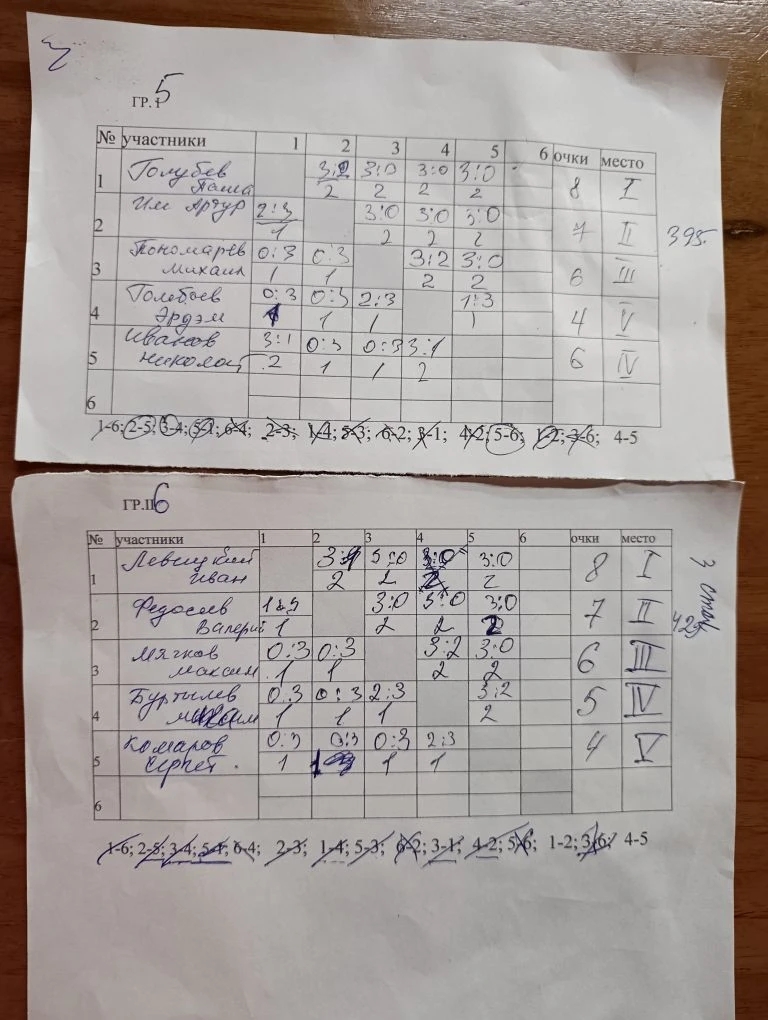 ГР.I 5
№ участники 1 2 3 4 5 6 очки место
1 Голубев Паша 3:2 3:0 3:0 3:0 8 I
2 2 2 2
2 Им Артур 2:3 3:0 3:0 3:0 7 II 395
1 2 2 2
3 Пономарёв Михаил 0:3 0:3 3:2 3:0 6 III
1 1 2 2
4 Эрдэм 0:3 0:3 2:3 1:3 4 V
1 1 1 1
5 Иванов Николай 3:1 0:3 0:3 3:1 6 IV
2 1 1 2
6
1-6; 2-5; 3-4; 5-1; 6-4; 2-3; 1-4; 5-3; 6-2; 3-1; 4-2; 5-6; 1-2; 3-6; 4-5
ГР.II 6
№ участники 1 2 3 4 5 6 очки место
1 Левицкий Иван 3:1 3:0 3:0 3:0 8 I 3 стол
2 2 2 2
2 Федосеев Валерий 1:3 3:0 3:0 3:0 7 II 425
1 2 2 2
3 Мягков Максим 0:3 0:3 3:2 3:0 6 III
1 1 2 2
4 Буртылев Максим 0:3 0:3 2:3 3:2 5 IV
1 1 1 2
5 Комаров Сергей 0:3 0:3 0:3 2:3 4 V
1 1 1 1
6
1-6; 2-5; 3-4; 5-1; 6-4; 2-3; 1-4; 5-3; 6-2; 3-1; 4-2; 5-6; 1-2; 3-6; 4-5